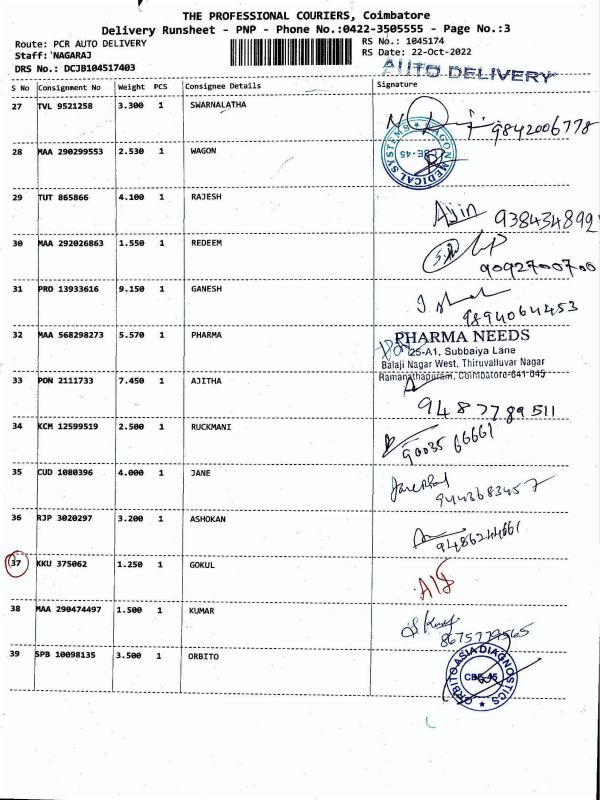 THE PROFESSIONAL COURIERS, Coimbatore
Delivery Runsheet - PNP - Phone No.:0422-3505555 - Page No.:3
Route: PCR AUTO DELIVERY RS No.: 1045174
Staff: NAGARAJ RS Date: 22-Oct-2022
DRS No.: DCJB104517403 AUTO DELIVERY
S No Consignment No Weight PCS Consignee Details Signature
27 TVL 9521258 3.300 1 SWARNALATHA
9842006778
28 MAA 290299553 2.530 1 WAGON
WAGON MEDICAL SYSTEMS CBE-45
29 TUT 865866 4.100 1 RAJESH
Ajin 938434892
30 MAA 292026863 1.550 1 REDEEM
9092700700
31 PRO 13933616 9.150 1 GANESH
9894064453
32 MAA 568298273 5.570 1 PHARMA
PHARMA NEEDS
25-A1, Subbaiya Lane
Balaji Nagar West, Thiruvalluvar Nagar
Ramanathapuram, Coimbatore-641 045
33 PON 2111733 7.450 1 AJITHA
9487789511
34 KCM 12599519 2.500 1 RUCKMANI
90035 66661
35 CUD 1080396 4.000 1 JANE
9443683457
36 RJP 3020297 3.200 1 ASHOKAN
9486244661
37 KKU 375062 1.250 1 GOKUL
38 MAA 290474497 1.500 1 KUMAR
8675779565
39 SPB 10098135 3.500 1 ORBITO
ORBITO ASIA DIAGNOSTICS CBE-45